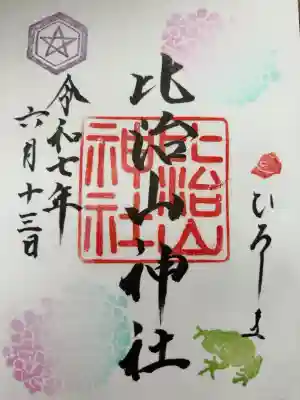 ひろしま
比治山神社
比治山
神社
令和七年
六月十三日